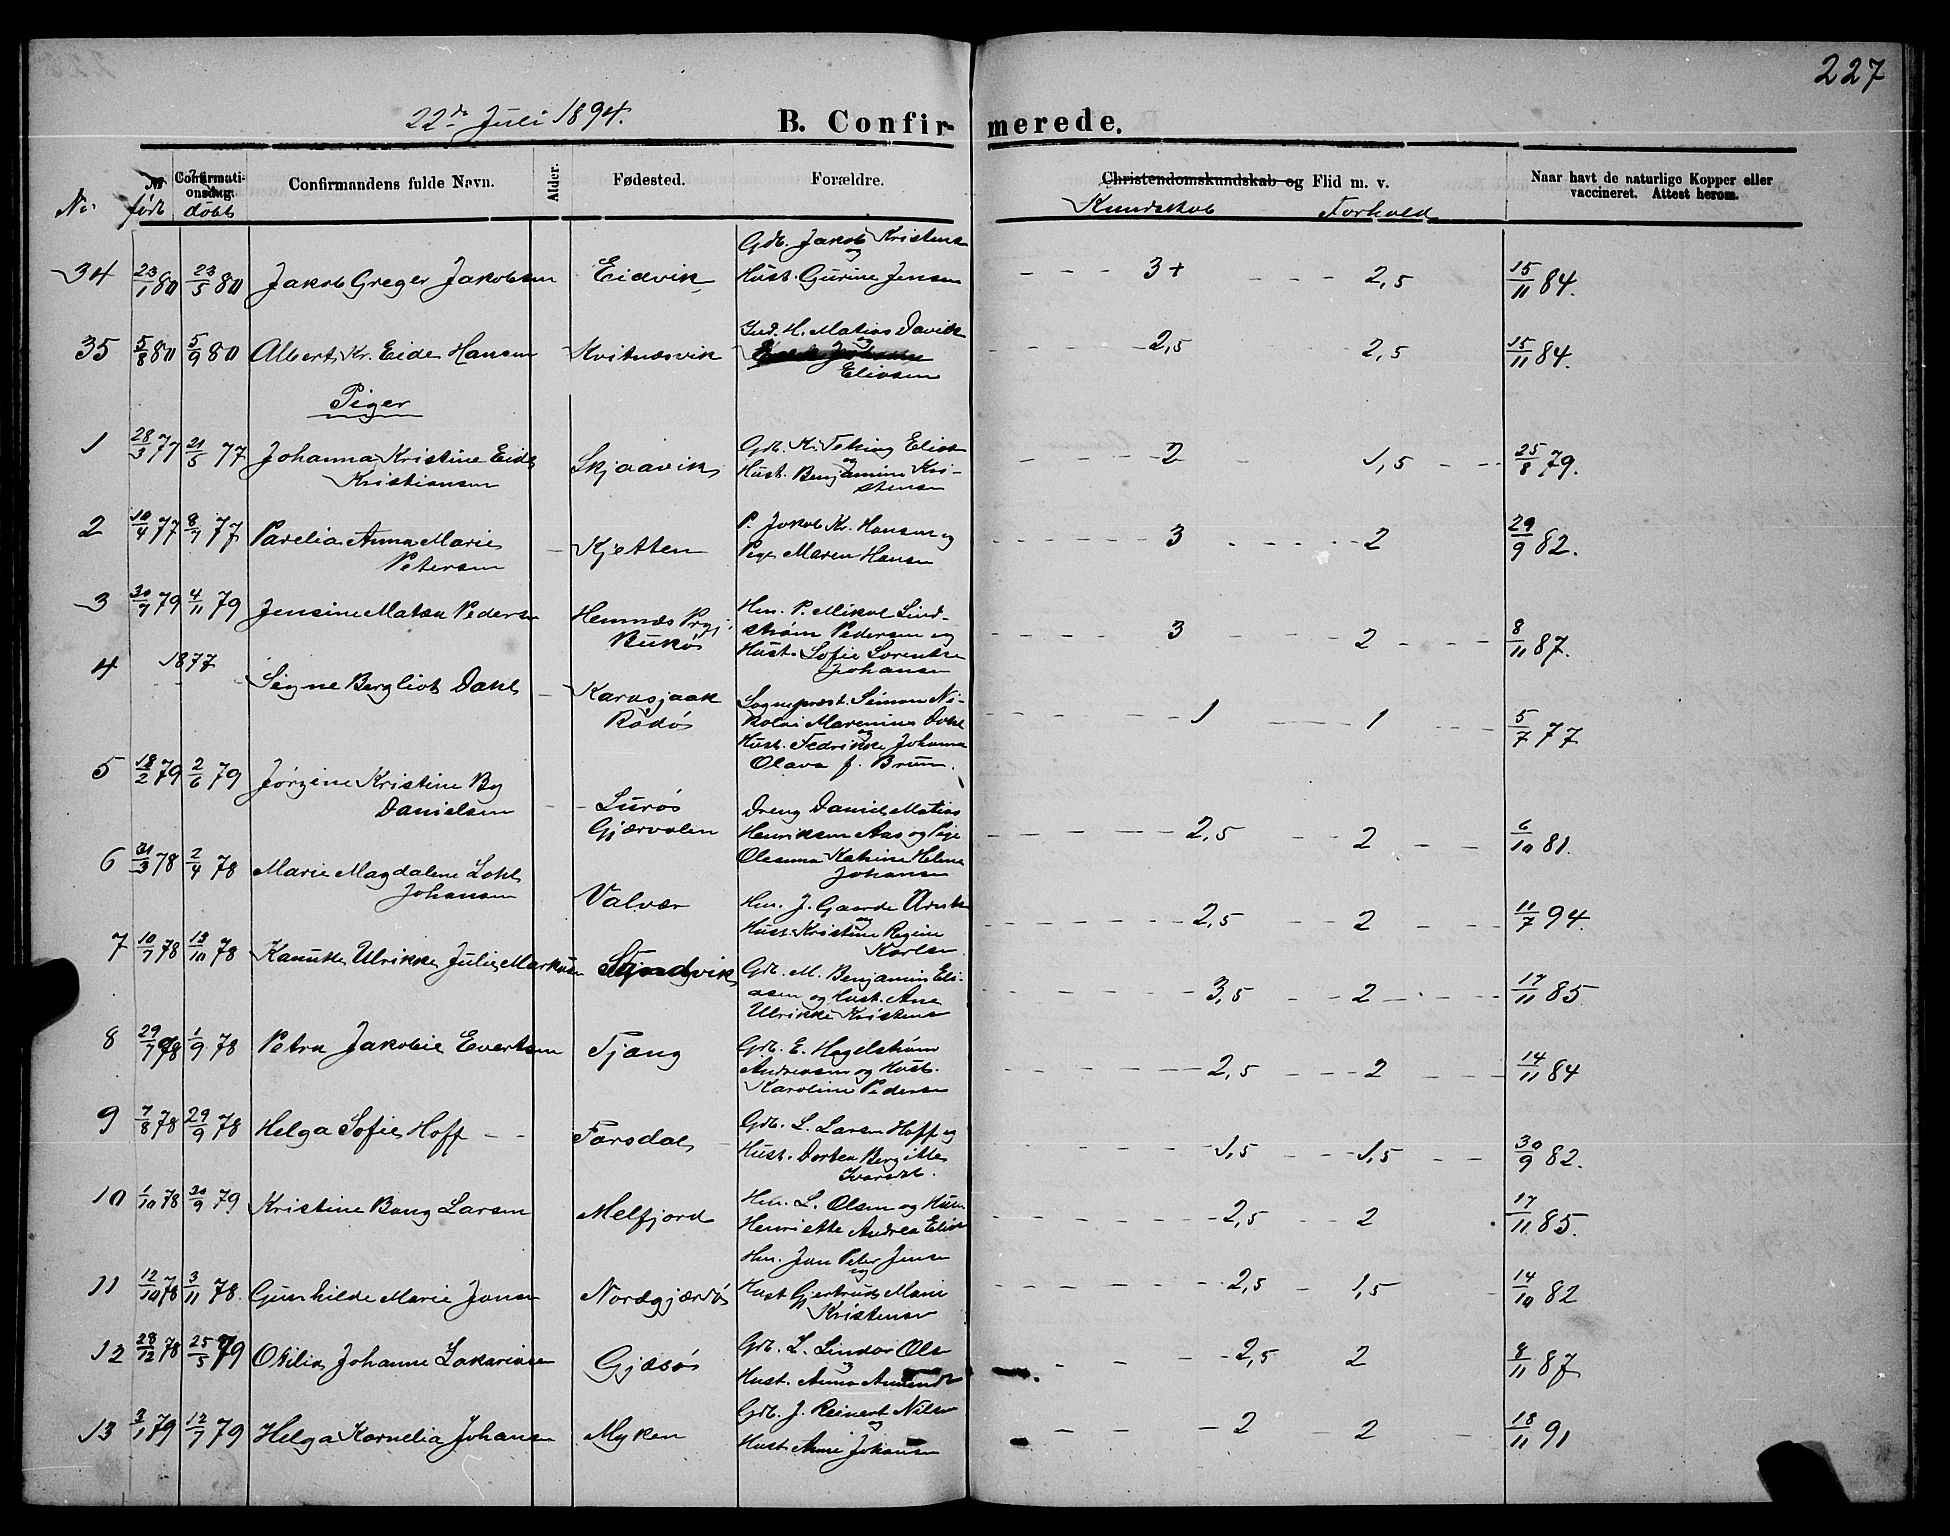 227
22de Juli 1894. B. Confirmerede.
No. | født | Confirmationsdag. døbt | Confirmandens fulde Navn. | Alder. | Fødested. | Forældre. | Christendomskundskab og Flid m. v. Kundskab Forhold | Naar havt de naturlige Kopper eller vaccineret. Attest herom.
Gdb. Jakob Kristens
og
34 23/1 80 23/5 80 Jakob Greger Jakobsen Eidvik Hust. Gurine Jensen 3+ 2,5 15/11 84.
Ind. H. Matias Davids
og
35 5/8 80 5/9 80 Albert Kr. Eide Hansen Kvitnæsvik 2,5 2,5 15/11 84.
Eliasen
Piger
1 28/3 77 21/5 77 Johanna Kristine Eide Skjaavik Gdb. K. Eliass 2 1,5 25/8 79.
Kristiansen og
Hust. Benjamine Kri-
stensen
2 10/4 77 8/7 77 Parelia Anna Marie Kjetten P. Jakob Kr. Hansen og 3 2 29/9 82.
Petersen Pige Maren Hansen
3 30/7 79 4/11 79 Jensine Matæa Pedersen Hemnæs Prgj. Hm. P. Mikal Lind- 3 2 8/11 87.
Bukøs strøm Pedersen og
Hust. Sofie Lorentse
Johansen
4 1877 Signe Bergliot Dahl Karvsjaak Sogneprest Simon Ni- 1 1 5/7 77
Rødøs kolai Marenius Dahl
og
Hust. Fedrikke Johanna
Olava f. Brun.
5 18/2 79 2/6 79 Jørgine Kristine Bg Lurøs Dreng Daniel Matias 2,5 2 6/10 81.
Danielsen Gjærvalen Henriksen Aas og Pige
Olesuna Katrine Helena
Johansen
6 31/3 78 2/4 78 Marie Magdalene Lohl Valvær Hm. J. Gaarde Arnts 2,5 2 11/7 94.
Johansen og
Hust. Kristine Regine
Karlsen
7 10/7 78 13/10 78 Kanutte Ulrikke Julie Markusen Gdb. M. Benjamin Eli- 3,5 2 17/11 85.
asen og Hust. Ane
Ulrikke Kristens
8 29/7 78 1/9 78 Petra Jakobie Evertsen Tjæng Gdb. E. Hagelstrøm 2,5 2 14/11 84
Andreasen og Hust.
Karoline Pedersen
9 7/8 78 29/9 78 Helga Sofie Hoff Farsdal Gdb. L. Larsen Hoff og 1,5 1,5 30/9 82.
Hust. Dortea Bergitte
10 1/10 78 30/9 79 Kristine Bang Larsen Melfjord Hm. L. Olsen og Hust. 2,5 2 17/11 85.
Henriette Andrea Elias
Hm. Jan Peter Jensen
og
11 12/10 78 3/11 78. Gunhilde Marie Jansen Nordgjærøs Hust Gjertrud Marie 2,5 1,5 14/10 82
Kristensen
12 28/12 78 25/5 79 Otilia Johanne Zakariasen Gjæsøs Gdb. L. Lindor Ols 2,5 2 8/11 87
og
Hust. Anna Amunds
13 3/1 79 12/7 79 Helga Kornelia Johansen Myken Gdb. J. Reinert Nilsen 2 2 18/11 91
og
Hust. Anne Johansen